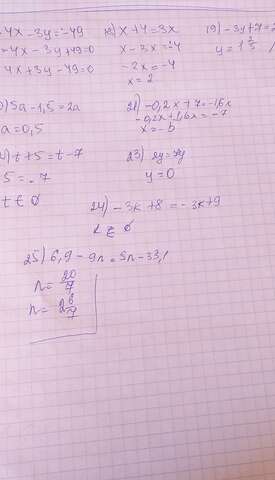 4x - 3y = -49
-4x - 3y + 49 = 0
4x + 3y - 49 = 0
18) x + 4 = 3x
x - 3x = -4
-2x = -4
x = 2
19) -3y + 7 = 2
5a - 1,5 = 2a
a = 0,5
21) -0,2x + 7 = -1,6x
-0,2x + 1,6x = -7
) t + 5 = t - 7
5 = -7
t ∈ ∅
23) 2y = 7y
y = 0
24) -3k + 8 = -3k + 9
∅
25) 6,9 - 9n = 5n - 33,1
n = 20/7
n = 2 6/7